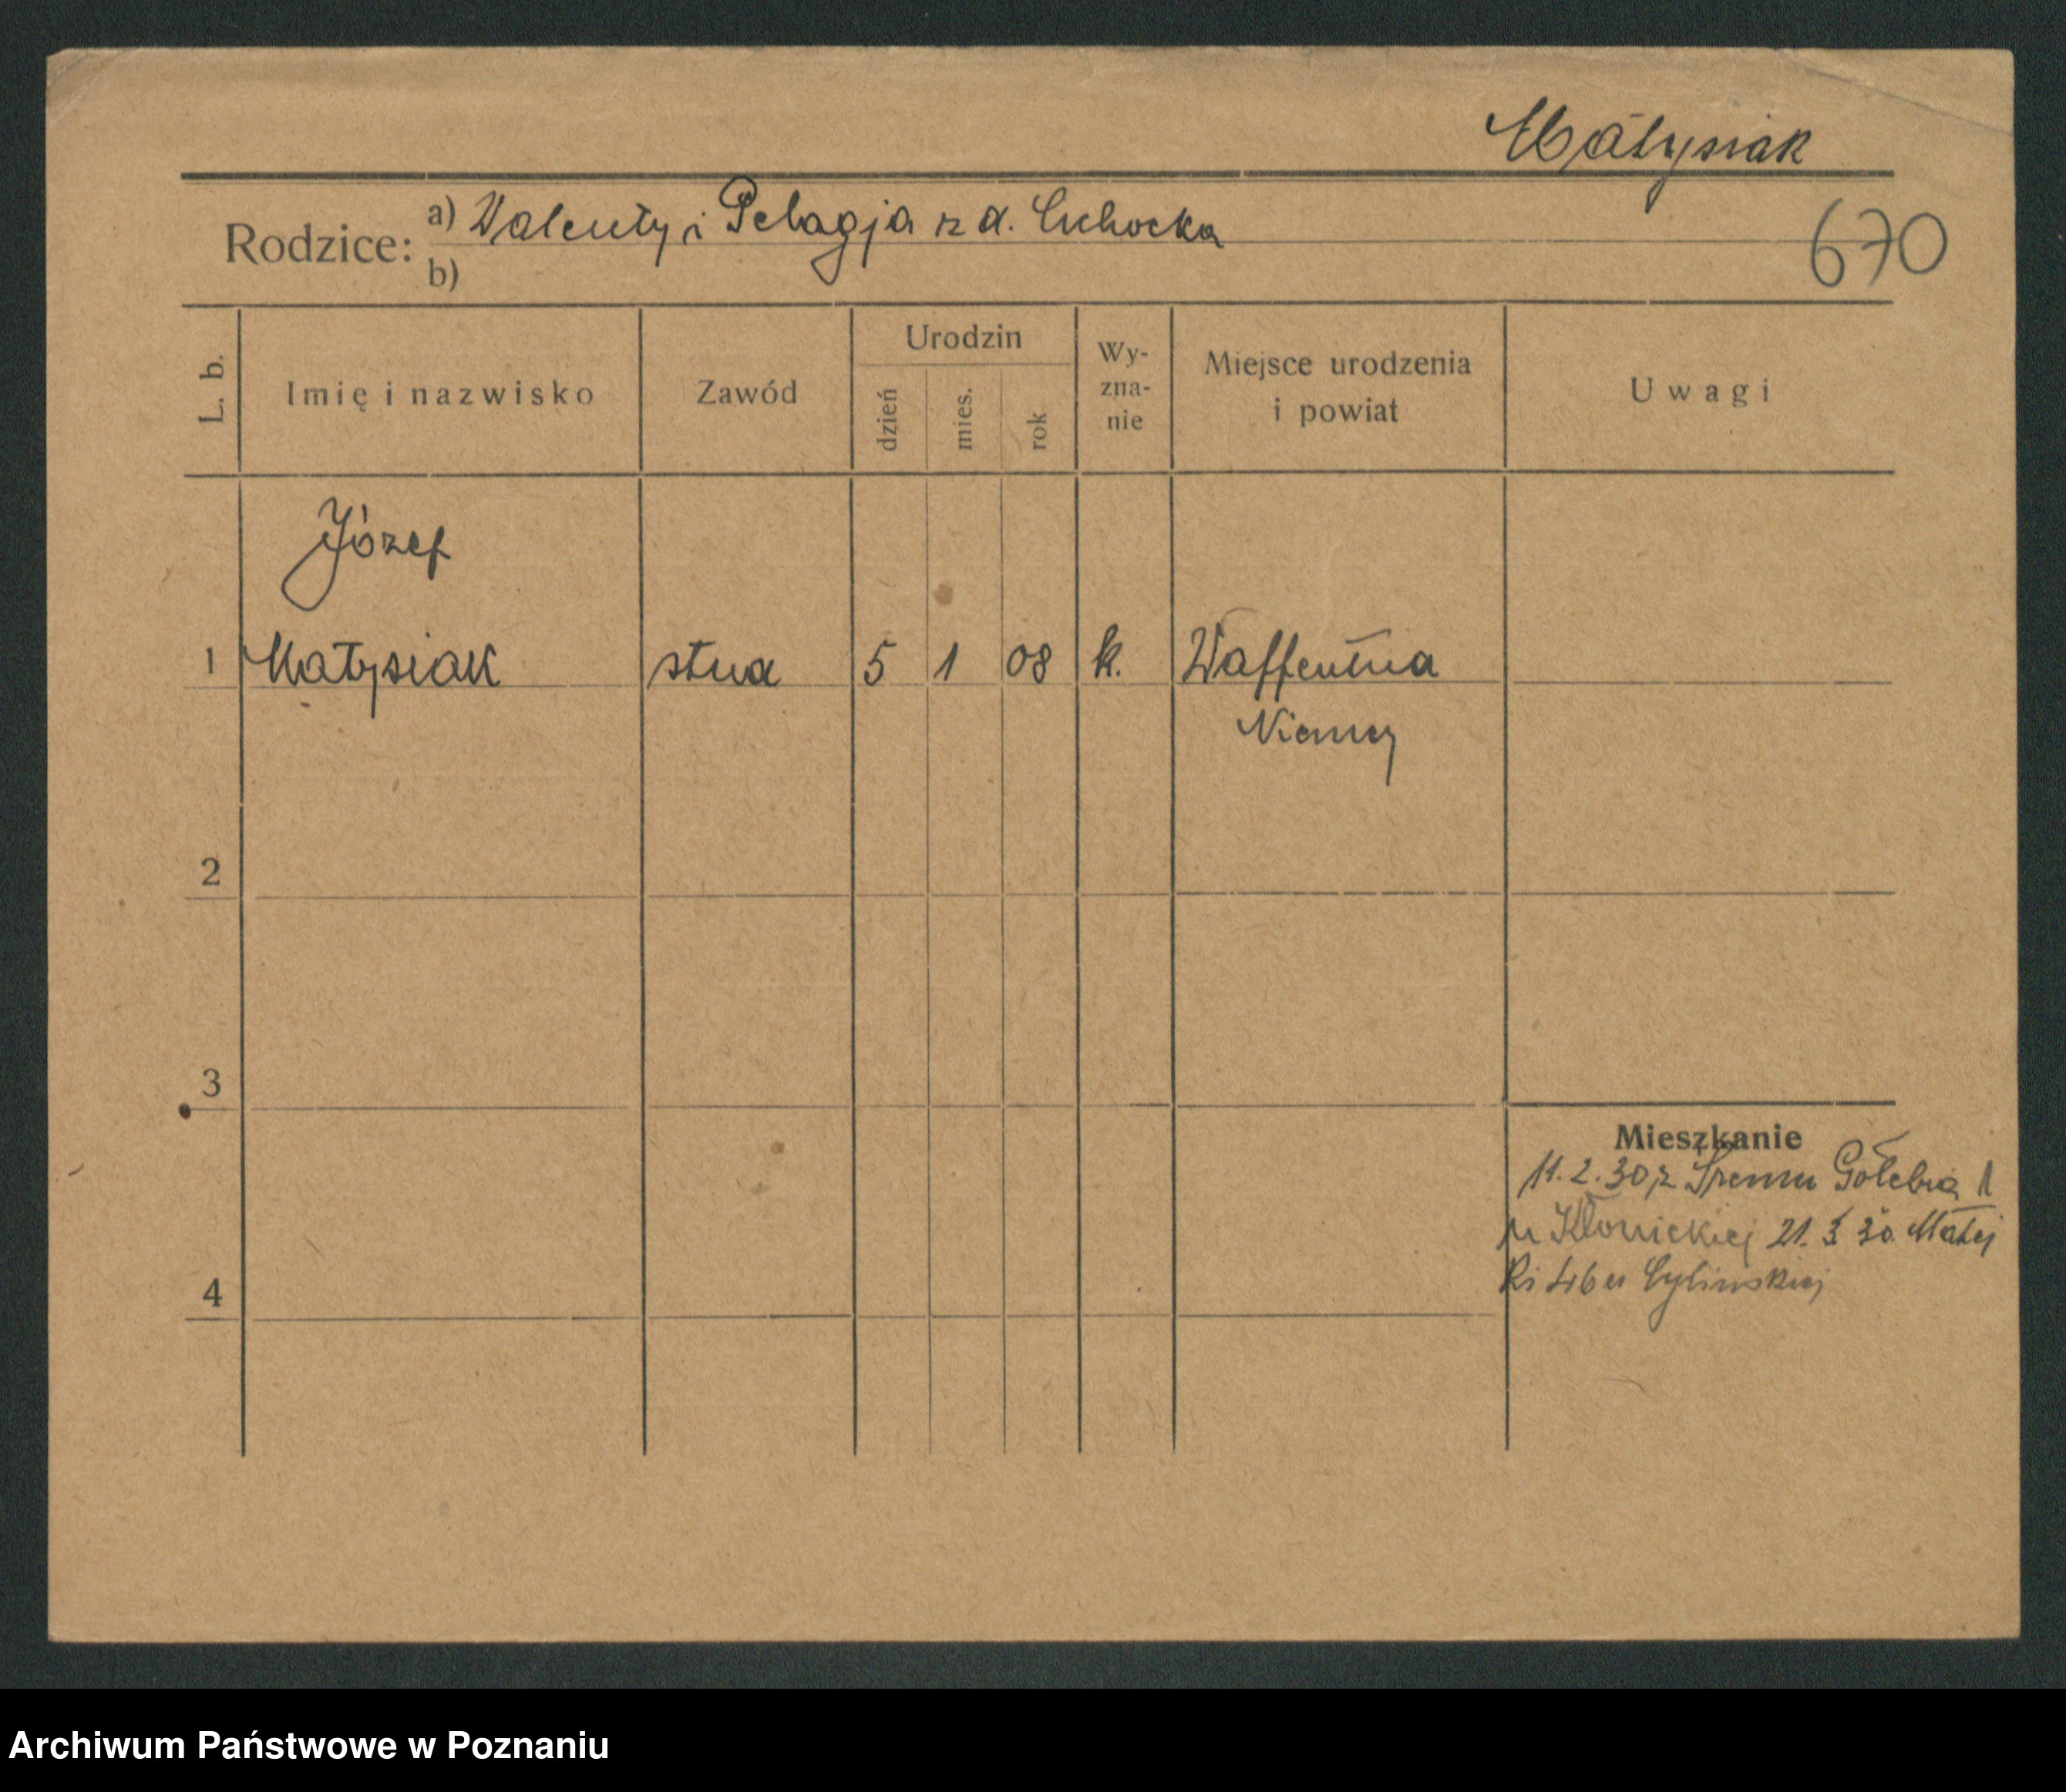 Małysiak
Rodzice: a) Walenty i Pelagja z d. Cichocka
670
b)
L. b.
Imię i nazwisko
Zawód
Urodzin
dzień
mies.
rok
Wy-
zna-
nie
Miejsce urodzenia
i powiat
Uwagi
Józef
1 Małysiak stud 5 1 08 k.
Niemcy
2
3
Mieszkanie
11.2.30 z Śremu Gołebia 1
u Kłonickiej 21. 3 30. Matej
ki 46 u Cylinskiej
4
Archiwum Państwowe w Poznaniu